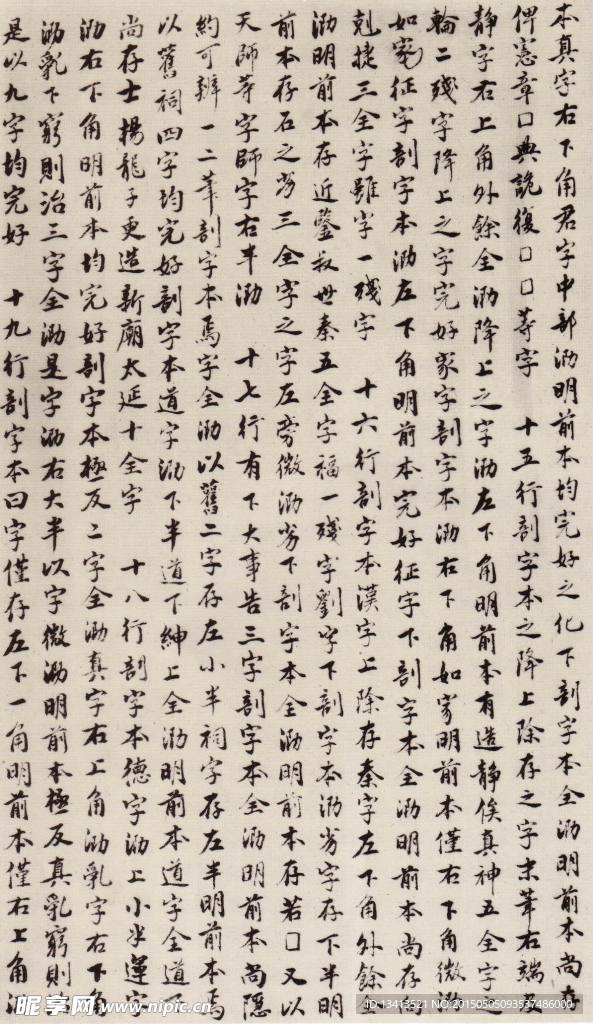 本真字右下角君字中部泐明前本均完好之化下剖字本全泐明前本尚存
俾憲章□典詭復□□等字 十五行剖字本之降上除存之字末筆右端及
静字右上角外餘全泐降上之字泐左下角明前本有造静俟真神五全字之
輪二殘字降上之字完好家字剖字本泐右下角如家明前本僅右下角微泐
如家征字剖字本泐左下角明前本完好征字下剖字本全泐明前本尚存
剋捷三全字雖字一殘字 十六行剖字本漢字上除存秦字左下角外餘
泐明前本存近鑒叔世秦五全字福一殘字劉字下剖字本泐劣字存下半明
前本存石之劣三全字之字左旁微泐劣下剖字本全泐明前本存若□又以
天師等字師字右半泐 十七行有下大事告三字剖字本全泐明前本尚隱
約可辨一二筆剖字本焉字全泐以舊二字存左小半祠字存左半明前本焉
以舊祠四字均完好剖字本道字泐下半道下紳上全泐明前本道字全道下
尚存士揚龍子更造新廟太延十全字 十八行剖字本德字泐上小半運字
泐右下角明前本均完好剖字本極反二字全泐真字右上角泐乳字右下角
泐乳下窮則治三字全泐是字泐右大半以字微泐明前本極反真乳窮則治
是以九字均完好 十九行剖字本曰字僅存左下一角明前本僅右上角泐
昵享网 www.nipic.cn
ID:13413521 NO:20150505093537486000